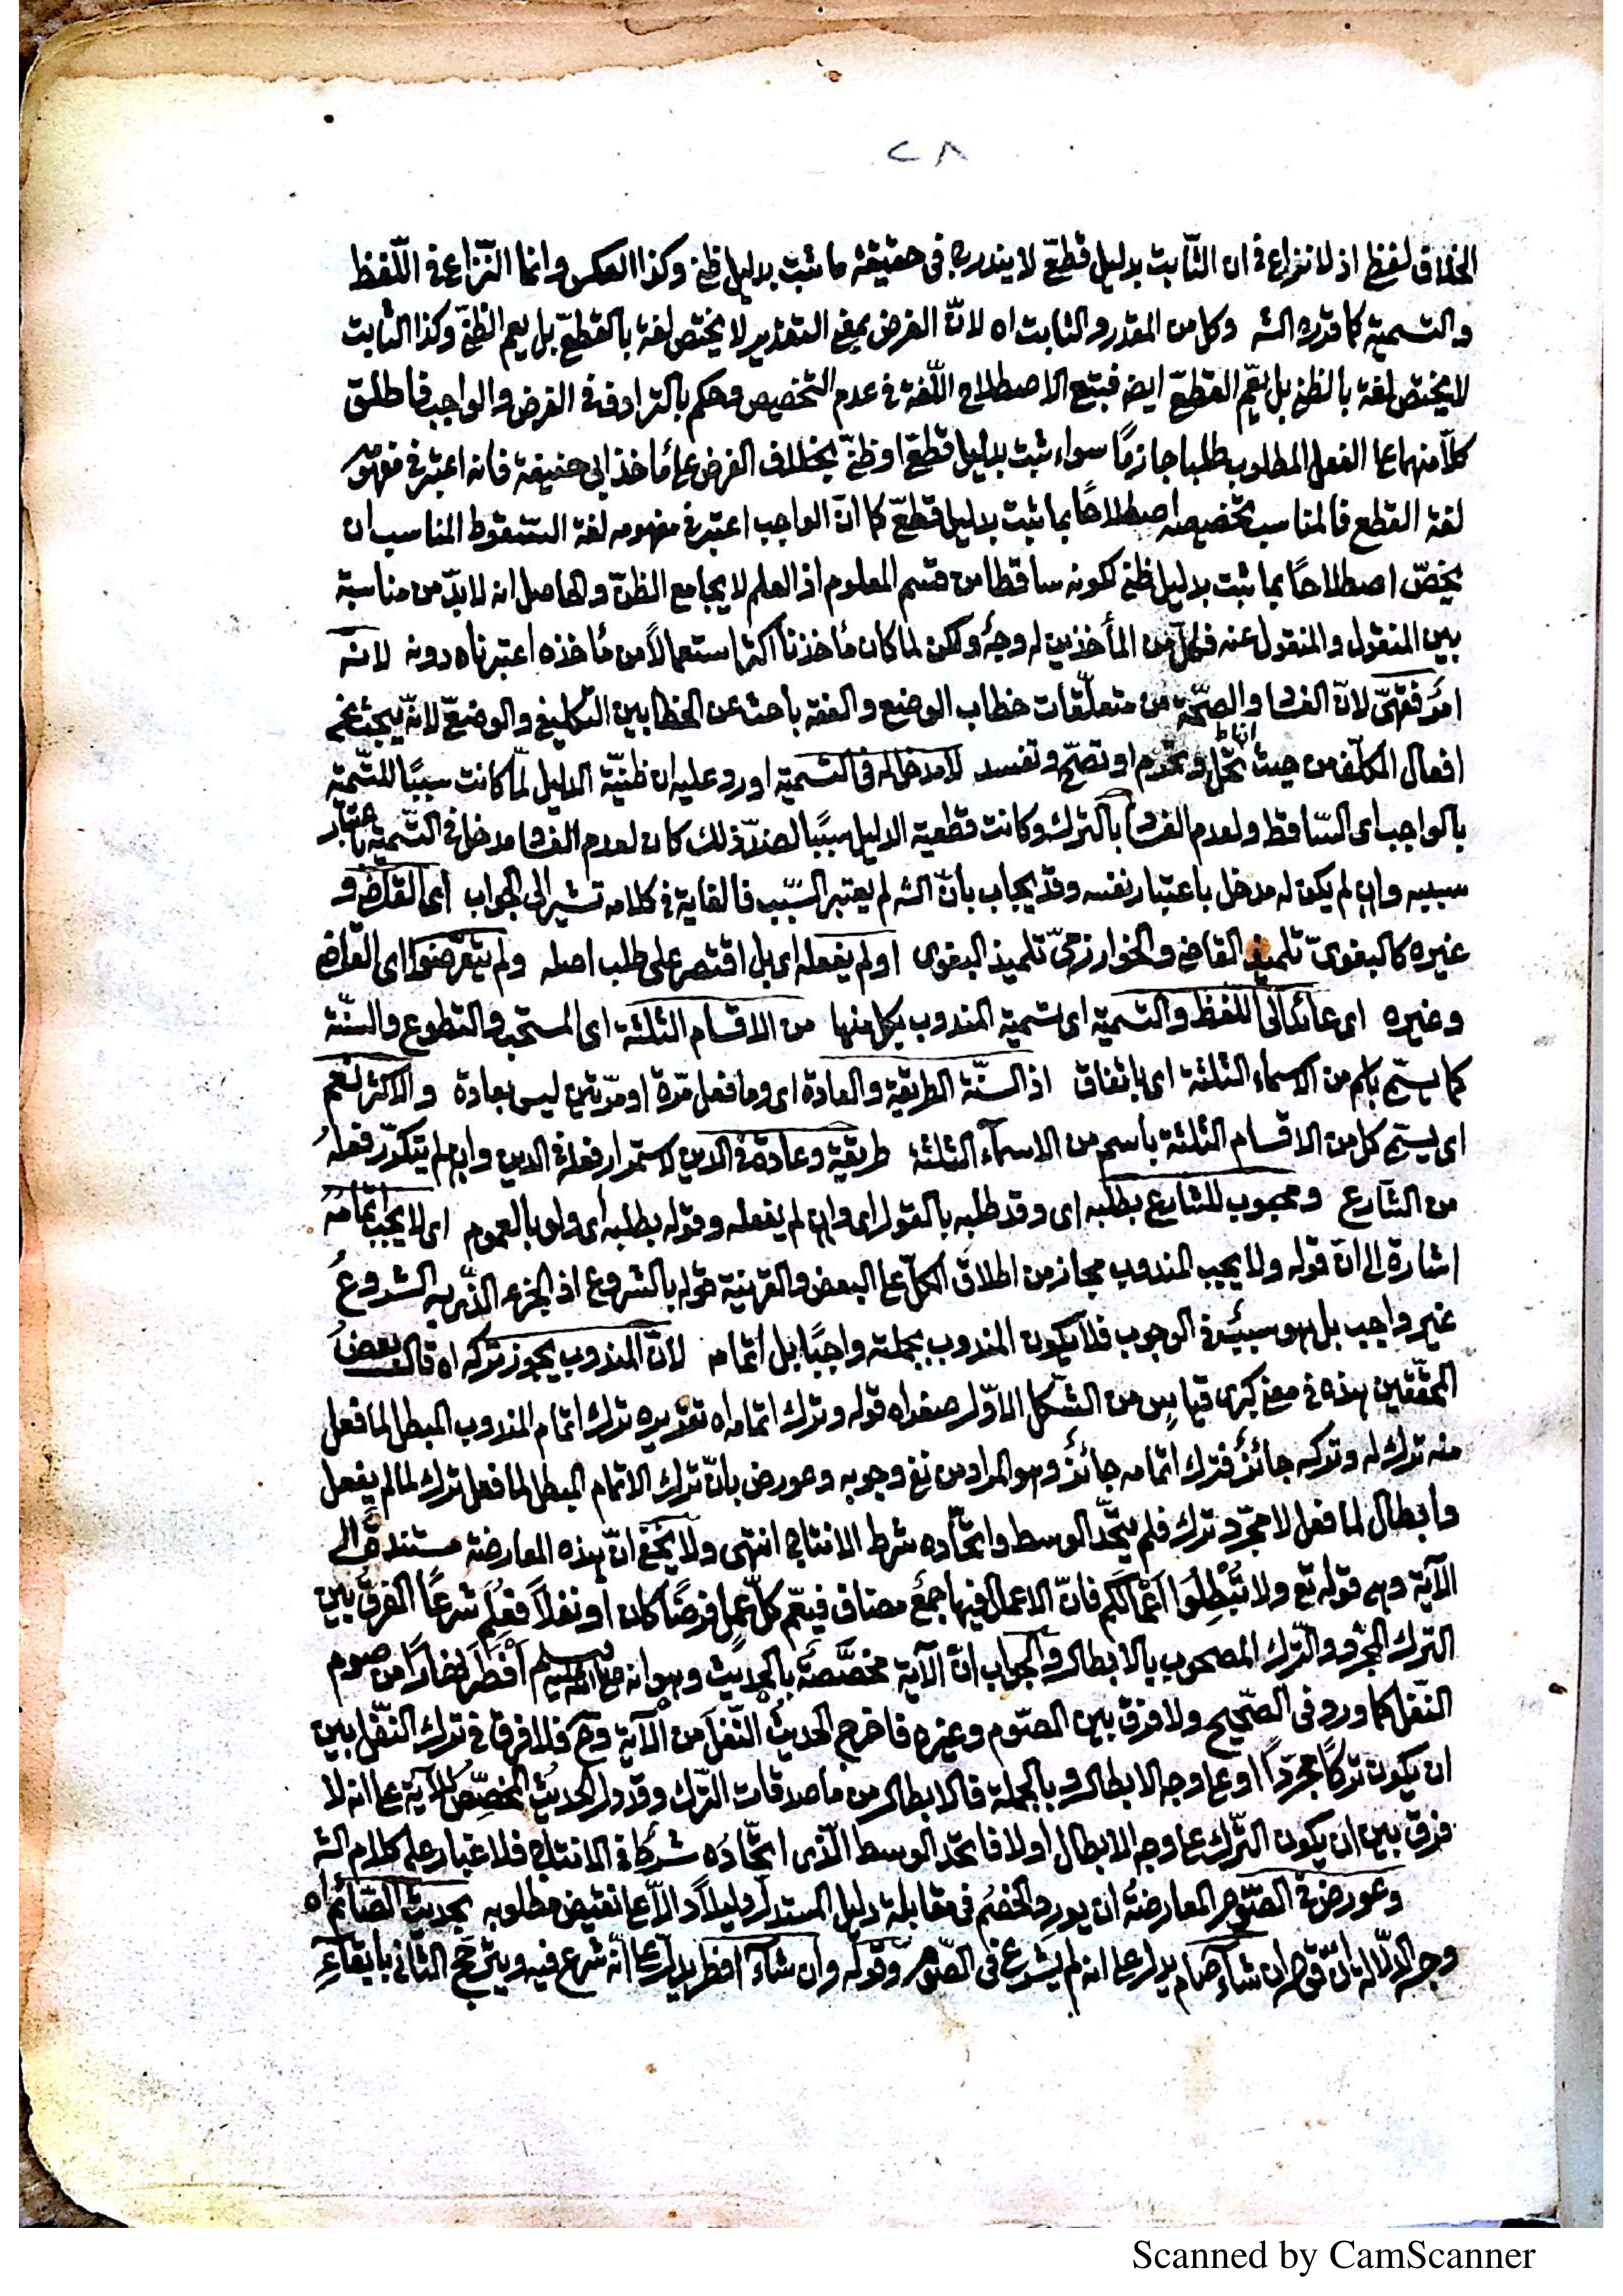 ٢٨
الخلاف لفظ اذ لا نزاع في ان الثّابت بدليل قطعّ لا يندرج في حقيقة ما ثبت بدليل ظنے وكذا العكس وانما النّزاع في اللّفظ
والتسمية كما قرره الشه وكل من المقدر والثابت اه لانّ الفرض بمعنے التقدير لا يختص لغة بالقطعّ بل يعم الظنّے وكذا الثابت
لا يختص لغة بالظنے بل يعّم القطعّ ايضا فيتبع الاصطلاح اللّغة في عدم التخصيص وحكم بالترادف في الفرض والواجب فاطلق
كلاّ منهما علے الفعل المطلوب طلبا جازمًا سواء ثبت بدليل قطعّ او ظنّے بخلاف الفرض علے مأخذ ابي حنيفة فانه اعتبر في مفهومه
لغة القطع فالمناسب تخصيصه اصطلاحًا بما ثبت بدليل قطعّ كما انّ الواجب اعتبر في مفهومه لغة السقوط المناسب ان
يخصّ اصطلاحًا بما ثبت بدليل ظنے لكونه ساقطا من قسم المعلوم اذ العلم لا يجامع الظنّ والحاصل انه لا بدّ من مناسبة
بين المنقول والمنقول عنه فلكلّ من المأخذين له وجهٌ ولكن لما كان مأخذنا اكثر استعمالاً من مأخذه اعتبرناه دونه لانه
امرٌ فقهيّ لانّ الفسا والصحّة من متعلّقات خطاب الوضع والفقه باحث عن الخطابين التكليفے والوضعّ لانّه يبحث عن
افعال المكلّف من حيث انها تحلّ وتحرم او تصحّ وتفسد لا مدخل له في التسمية اورد عليه ان ظنيّة الدليل لمّا كانت سببًا للتسمية
بالواجب اى السّاقط ولعدم الفسا بالترك وكانت قطعية الدليل سببًا لضدّ ذلك كان لعدم الفسا مدخل في التّسمية باعتبار
سببه وان لم يكن له مدخل باعتبار نفسه وقد يجاب بأنّ الشه لم يعتبر السّبب فالغاية في كلامه تشير الى الجواب اى القاضے و
غيره كالبغويّ تلميذ القاضے والخوارزميّ تلميذ البغوى او لم يفعله اى بل اقتصر على طلب اصله ولم يتعرّضوا اى القاضے
وغيره اى عائد الى اللفظ والتسمية اى تسمية المندوب بكل منها من الاقسام الثلثة اى المستحب والتطوع والسنّة
كما يسمّے باسم من الاسماء الثلثة اى باتفاق اذ السنّة الطريقة والعادة اى وما فعل مرّة او مرّتين ليس بعادة والاكثر نعم
اى يسمّے كل من الاقسام الثلثة بأسم من الاسمآء الثلثة طريقة وعادة في الدين لاستمرار فعله في الدين وان لم يتكرّر فعلهُ
من الشارع ومحبوب للشارع بطلبه اى وقد طلبه بالقول اى وان لم يفعله وقوله بطلبه اى ولو بالعموم اى لا يجب اتمامهُ
اشارة الى انّ قوله ولا يجب المندوب مجاز من اطلاق الكلّ علے البعض والقرينة قوله بالشروع اذ الجزء الذّى به الشروعُ
غير واجب بل هو سببٌ في الوجوب فلا يكون المندوب بجملته واجبًا بل اتمامه لانّ المندوب يجوز تركه اه قال بعضُ
المحقّقين هذه في معنے كبرى قياسٍ من الشّكل الاوّل صغراه قوله وترك اتمامه اه تقديره ترك اتمام المندوب المبطل لما فعل
منه ترك له وتركه جائزٌ فترك اتمامه جائزٌ وهو المراد من نفے وجوبه وعورض بانّ ترك الاتمام المبطل لما فعل ترك لما لم يفعل
وابطال لما فعل لا مجرّد ترك فلم يتّحد الوسط واتّحاده شرط الانتاج انتهى ولا يخفے انّ هذه المعارضة مستندةٌ الى
الآية وهى قوله تع ولا تُبْطِلُوا أعْمَالَكُم فانّ الاعمال فيها جمعٌ مضاف فيعّم كلّ عملٍ فرضًا كان او نفلاً فعُلِم شرعًا الفرقُ بين
الترك المجرّد والترك المصحوب بالابطال والجواب انّ الآية مخصَّصة بالحديث وهو انه صلے الله عليه وسلم أفْطَرَ نهارًا من صوم
النّفل كما ورد في الصّحيح ولا فرق بين الصّوم وغيره فاخرج الحديثُ النّفلَ من الآية وح فلا فرق في ترك النّفل بين
ان يكون تركًا مجرّدًا او علے وجه الابطال وبالجملة فالابطال من ماصدقات التّرك وقد دلّ الحديث المخصِّصُ للآية علے انه لا
فرق بين ان يكون التّرك علے وجه الابطال او لا فاتّحد الوسط الّذى اتّحادُه شرطٌ في الانتاج فلا غبار علے كلام الشه
وعورض في الصّوم المعارضةُ ان يورد الخصْم في مقابلة دليل المستدلّ دليلاً دالاّ علے نقيض مطلوبه بحديث الصّائم اه
وجه الدّلالة انّ قوله ان شاء صام يدل علے انه لم يشرع في الصّوم وقوله وان شآء افطر يدلّ علے انّه شرع فيه ويترجّح الثاني بابقاء